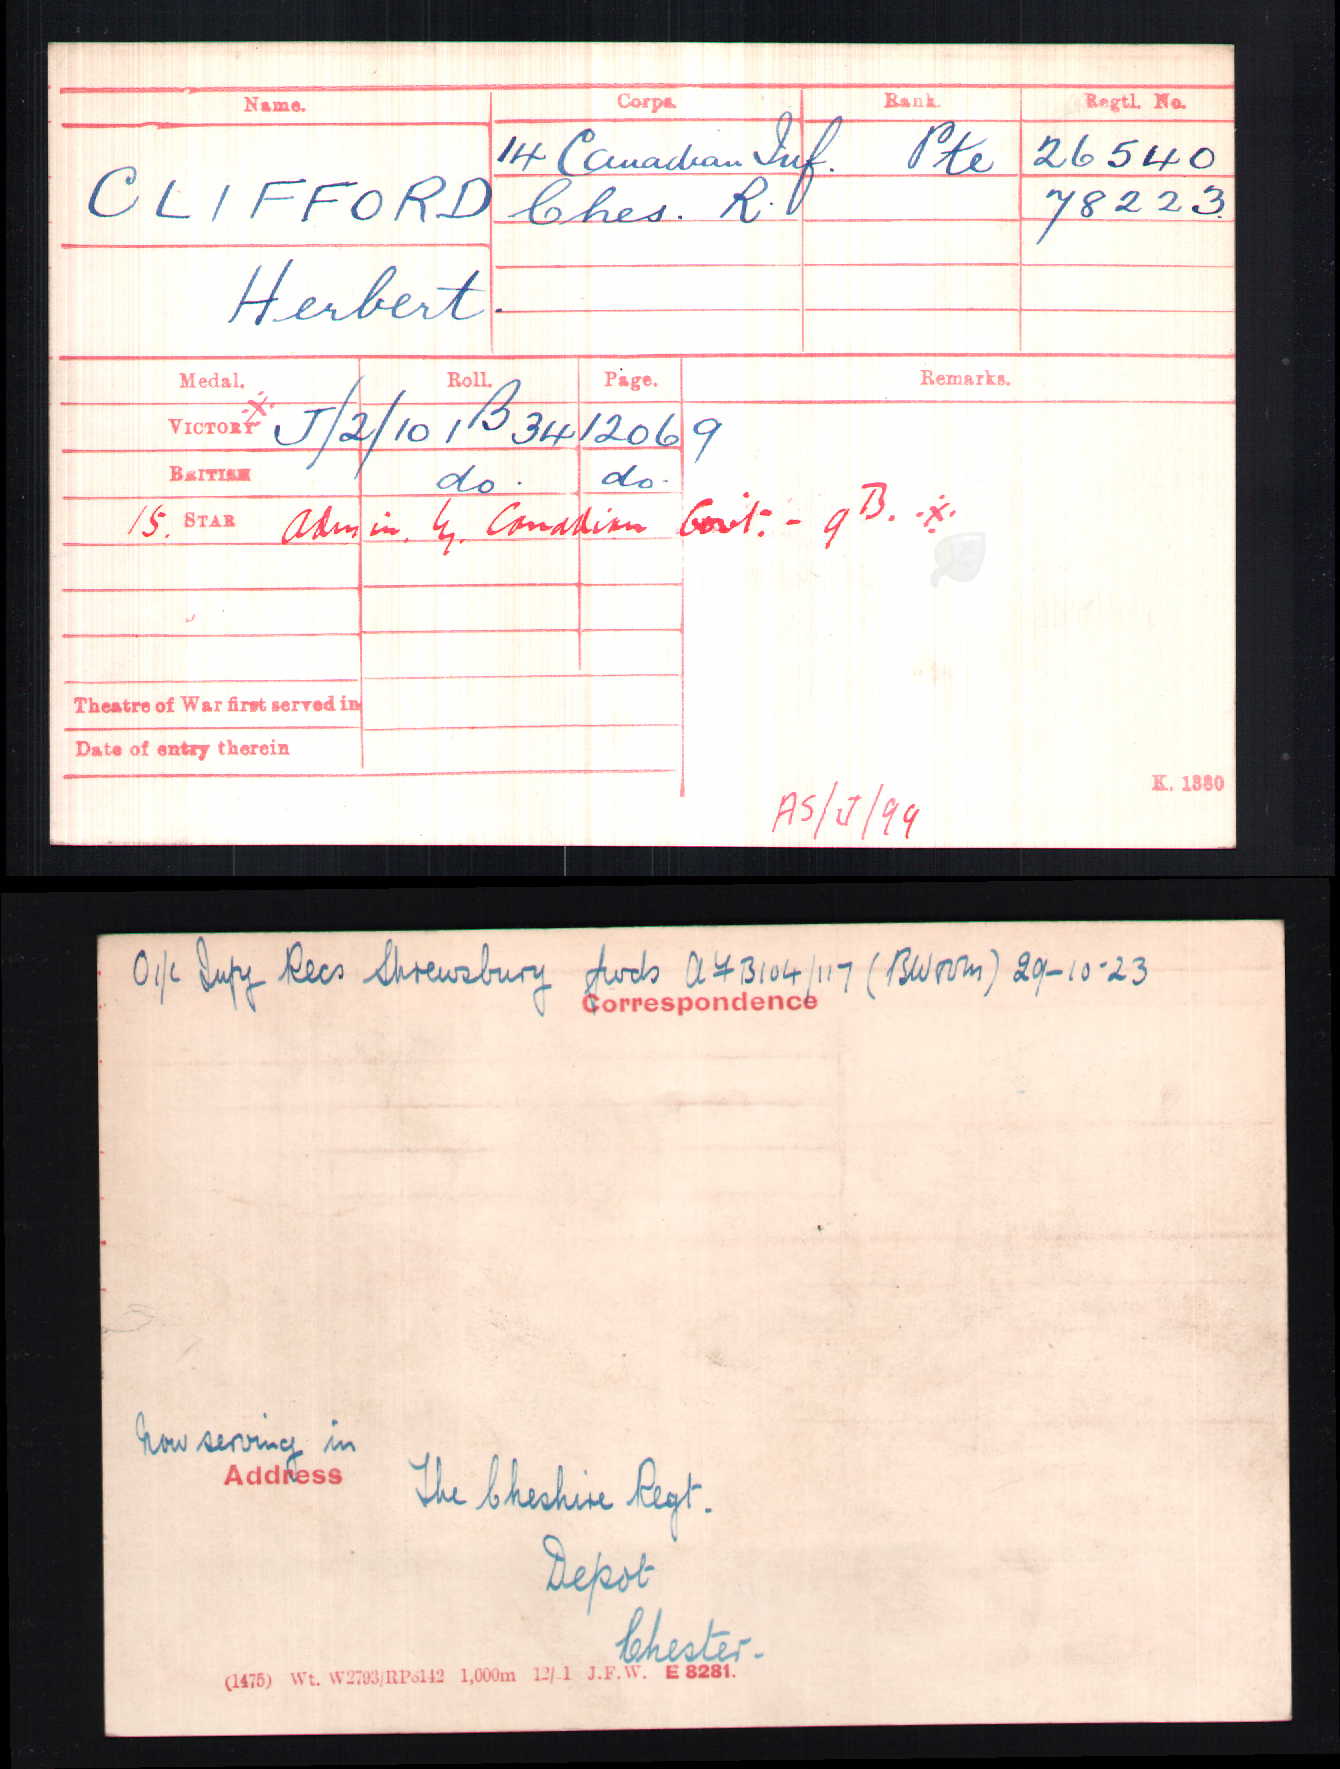 Name. Corps. Rank. Regtl. No.
14 Canadian Inf. Pte 26540
CLIFFORD Ches. R. 78223
Herbert.
Medal. Roll. Page. Remarks.
VICTORY J/2/101 B34 12069
BRITISH do. do.
15. STAR Admin. by Canadian Govt. - 9B.
Theatre of War first served in
Date of entry therein
K. 1380
AS/J/99
O i/c Infy Recs Shrewsbury fwds AFB104/117 (BW&VM) 29-10-23
Correspondence
Now serving in
Address
The Cheshire Regt.
Depot
Chester.
(1475) Wt. W2793/RP6142 1,000m J.F.W. E 8281.